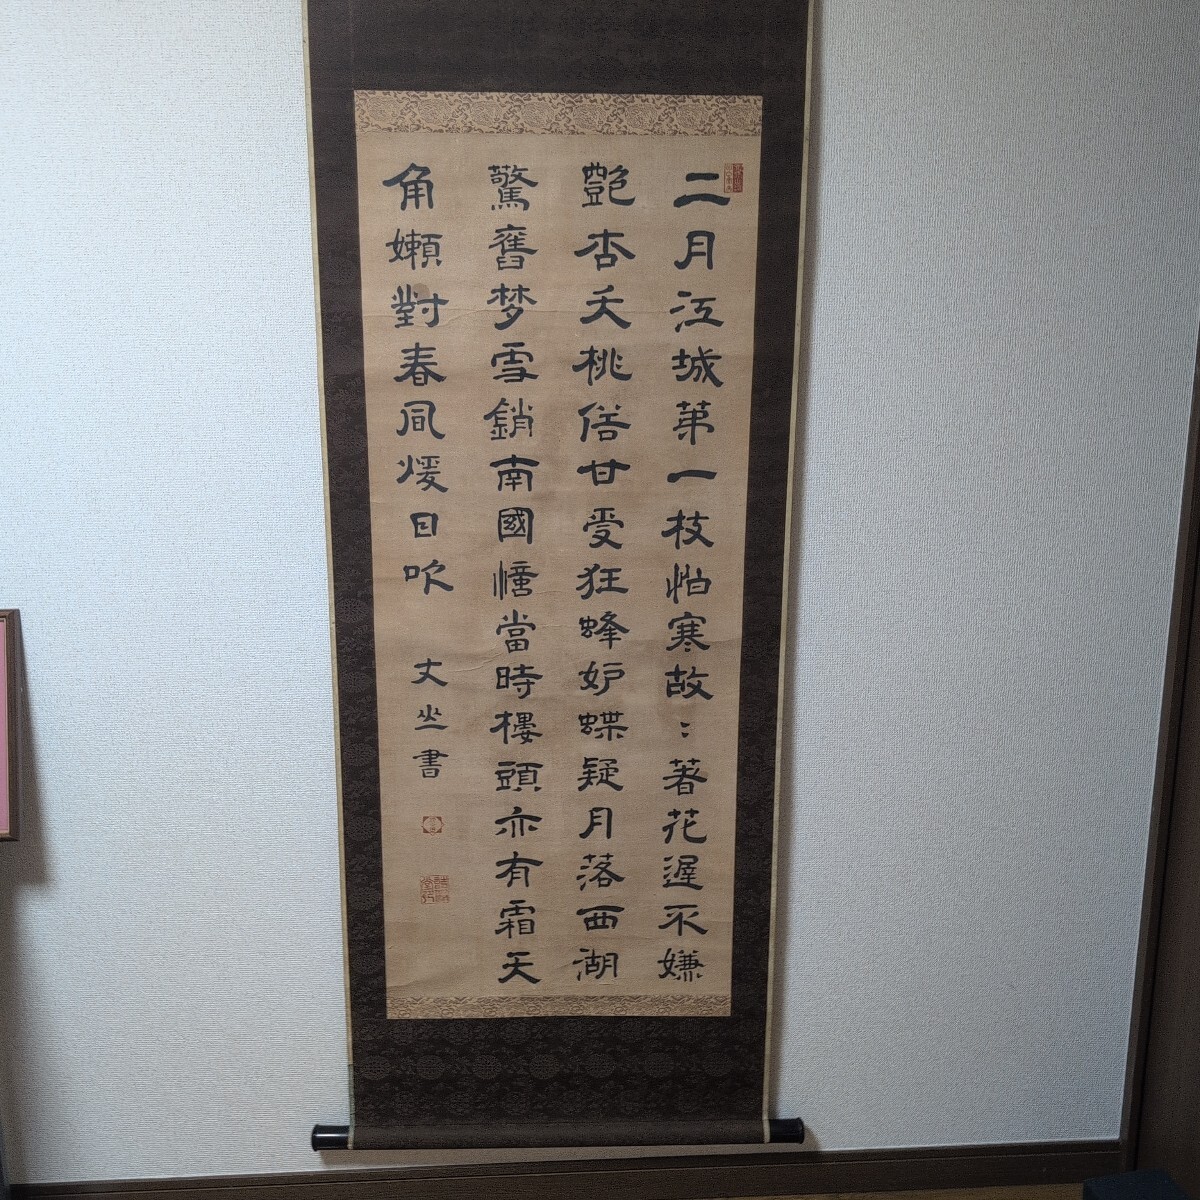 二月江城第一枝怕寒故〻著花遲不嫌
艷杏夭桃俗甘受狂蜂妒蝶疑月落西湖
驚舊梦雪銷南國憶當時樓頭亦有霜天
角嬾對春風煖日吹
丈坐書